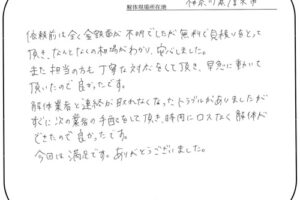 解体現場所在地 神奈川県厚木市
依頼前は全く金額面が不明でしたが無料で見積りをとって
頂き、なんとなくの相場がわかり、安心しました。
また担当の方も丁寧な対応をして頂き、早急に動いて
頂いたので良かったです。
解体業者と連絡が取れなくなったトラブルがありましたが
すぐに次の業者の手配をして頂き、時間にロスなく解体が
できたので良かったです。
今回は満足です。ありがとうございました。